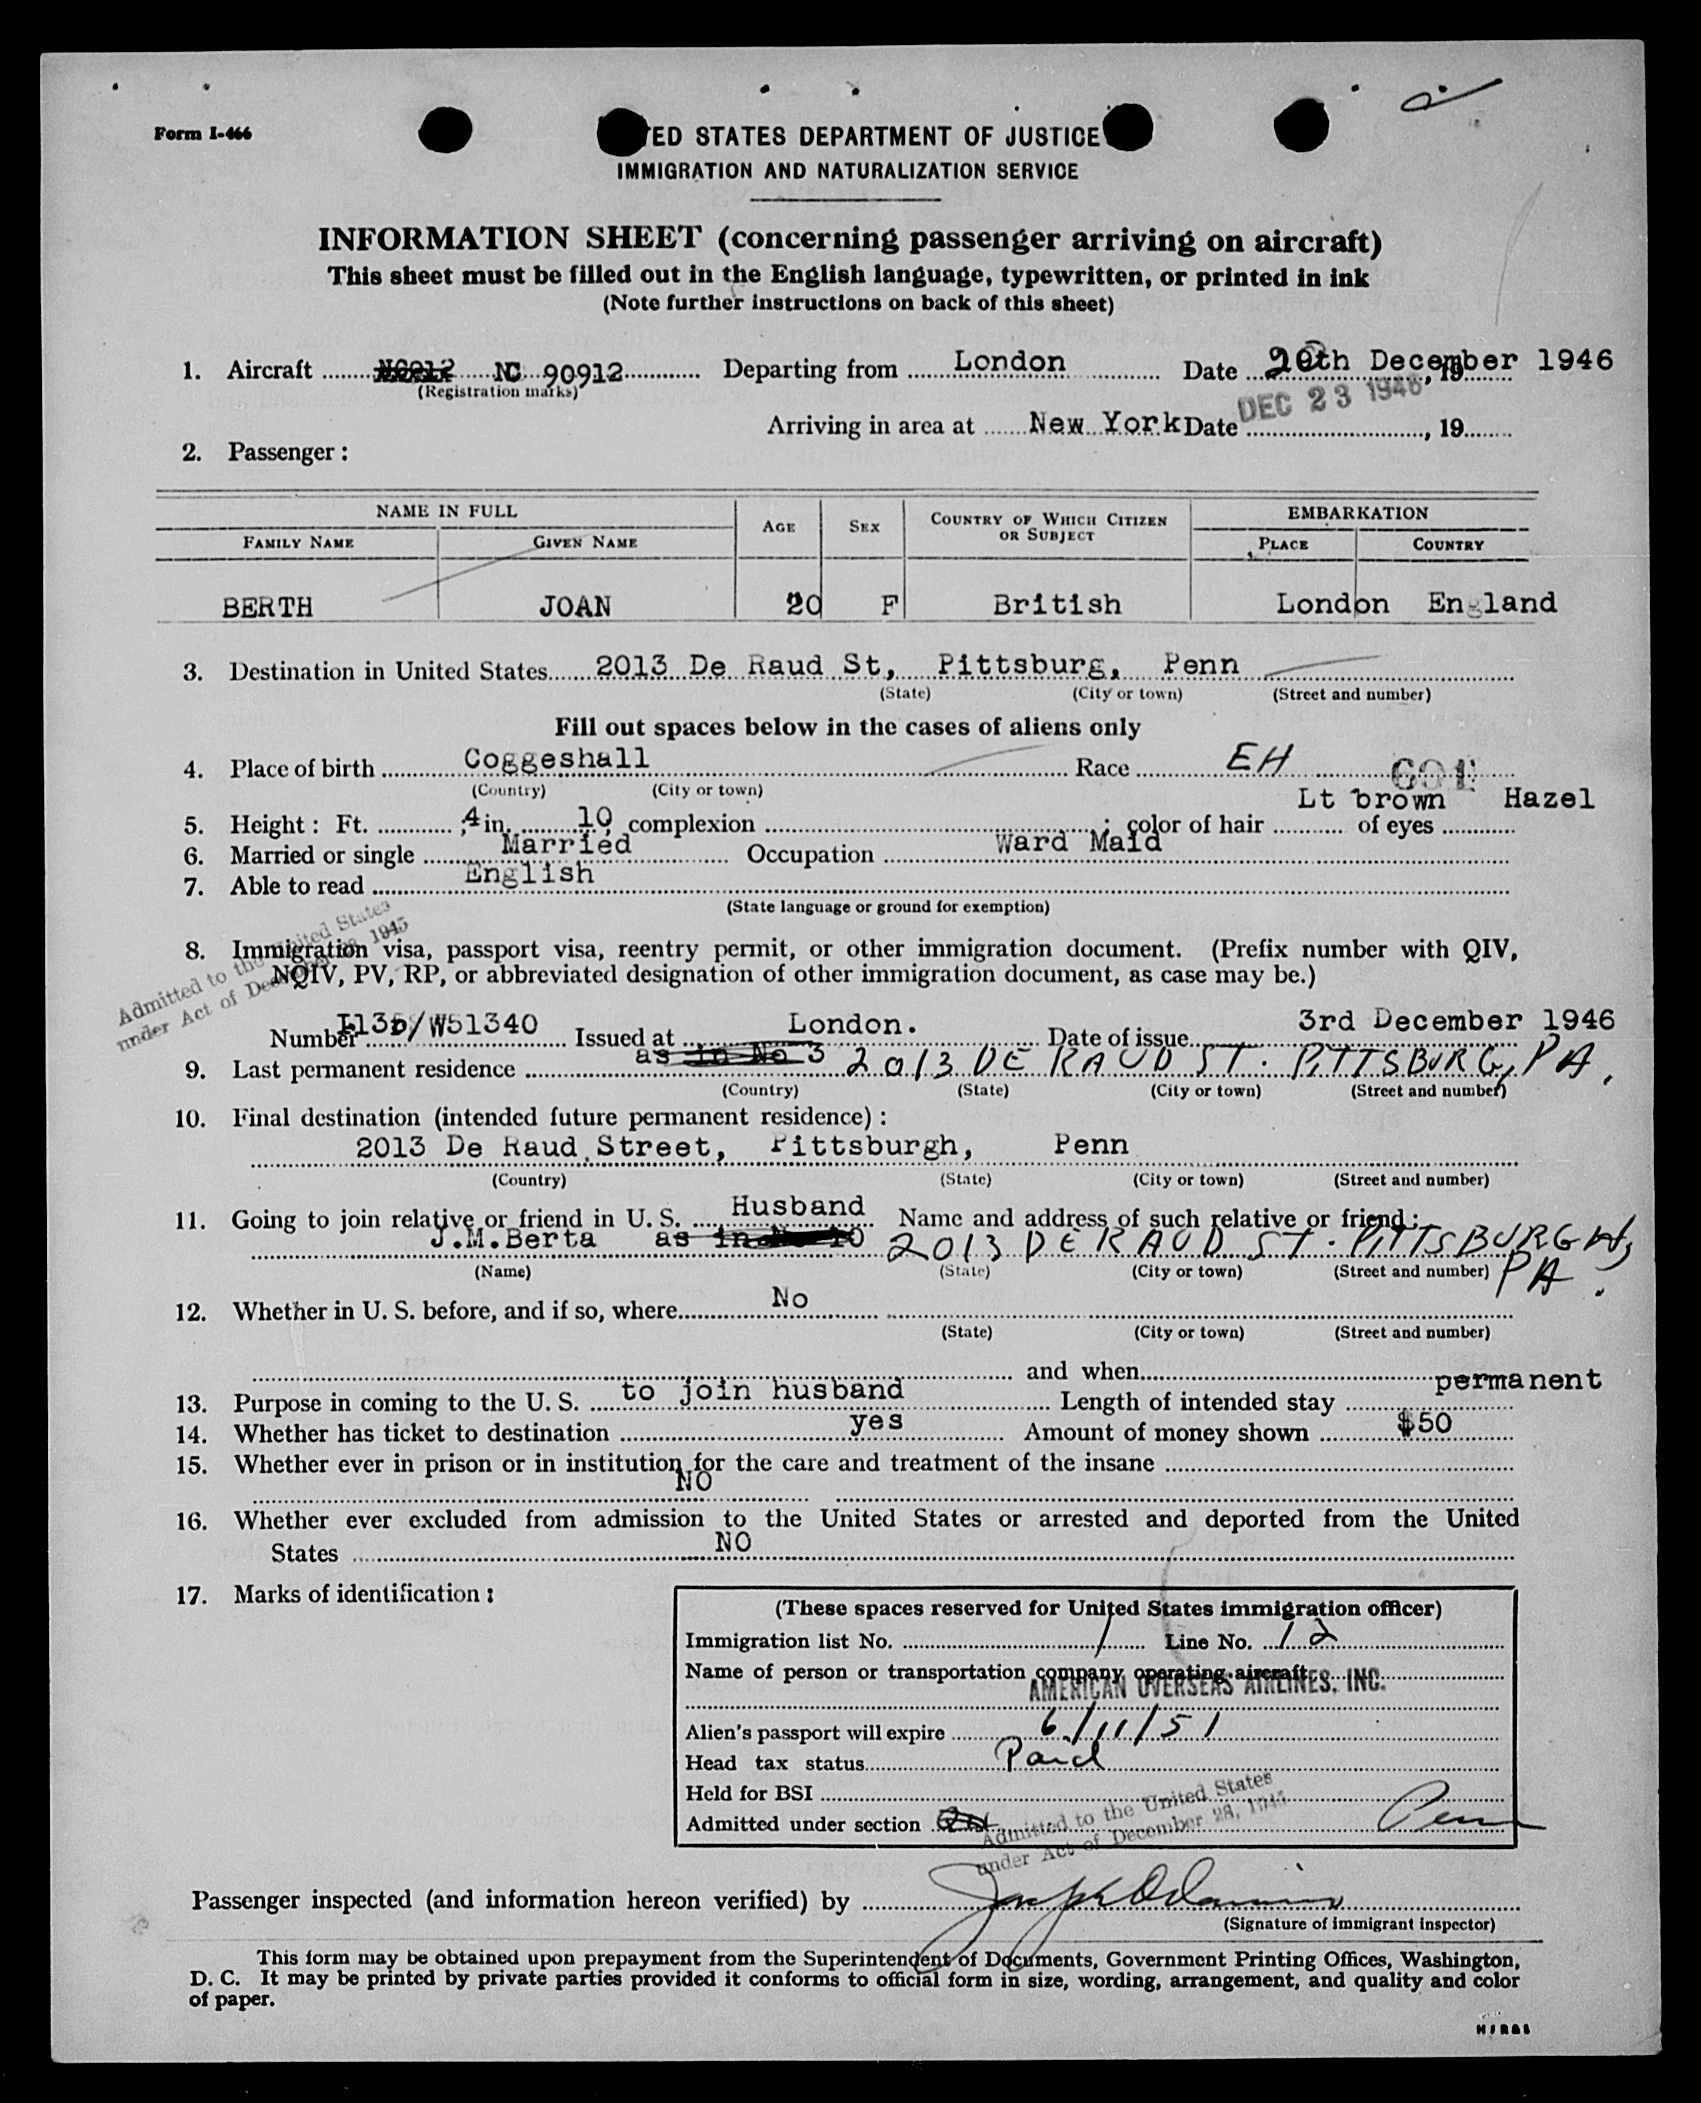 Form I-466
TED STATES DEPARTMENT OF JUSTICE
IMMIGRATION AND NATURALIZATION SERVICE
INFORMATION SHEET (concerning passenger arriving on aircraft)
This sheet must be filled out in the English language, typewritten, or printed in ink
(Note further instructions on back of this sheet)
1. Aircraft NC 90912 Departing from London Date December 1946, 19
(Registration marks)
Arriving in area at New York Date DEC 23 1946, 19
2. Passenger:
NAME IN FULL AGE SEX COUNTRY OF WHICH CITIZEN OR SUBJECT EMBARKATION
FAMILY NAME GIVEN NAME PLACE COUNTRY
BERTH JOAN 20 F British London England
3. Destination in United States 2013 De Raud St, Pittsburg, Penn
(State) (City or town) (Street and number)
Fill out spaces below in the cases of aliens only
4. Place of birth Coggeshall Race EH
(Country) (City or town)
5. Height: Ft. 4 in. 10, complexion ; color of hair Lt brown of eyes Hazel
6. Married or single Married Occupation Ward Maid
7. Able to read English
(State language or ground for exemption)
Admitted to the United States
under Act of December 28, 1945
8. Immigration visa, passport visa, reentry permit, or other immigration document. (Prefix number with QIV,
NQIV, PV, RP, or abbreviated designation of other immigration document, as case may be.)
Number W51340 Issued at London. Date of issue 3rd December 1946
9. Last permanent residence as in No 3 2013 DE RAUD ST. PITTSBURG, PA.
(Country) (State) (City or town) (Street and number)
10. Final destination (intended future permanent residence):
2013 De Raud Street, Pittsburgh, Penn
(Country) (State) (City or town) (Street and number)
11. Going to join relative or friend in U. S. Husband Name and address of such relative or friend:
J.M.Berta as in No 10 2013 DE RAUD ST. PITTSBURGH, PA.
(Name) (State) (City or town) (Street and number)
12. Whether in U. S. before, and if so, where No
(State) (City or town) (Street and number)
and when
13. Purpose in coming to the U. S. to join husband Length of intended stay permanent
14. Whether has ticket to destination yes Amount of money shown $50
15. Whether ever in prison or in institution for the care and treatment of the insane
NO
16. Whether ever excluded from admission to the United States or arrested and deported from the United
States NO
17. Marks of identification:
(These spaces reserved for United States immigration officer)
Immigration list No. 1 Line No. 12
Name of person or transportation company operating aircraft
AMERICAN OVERSEAS AIRLINES, INC.
Alien's passport will expire 6/11/51
Head tax status Paid
Held for BSI
Admitted under section Admitted to the United States Perm
under Act of December 28, 1945
Passenger inspected (and information hereon verified) by
(Signature of immigrant inspector)
This form may be obtained upon prepayment from the Superintendent of Documents, Government Printing Offices, Washington,
D. C. It may be printed by private parties provided it conforms to official form in size, wording, arrangement, and quality and color
of paper.